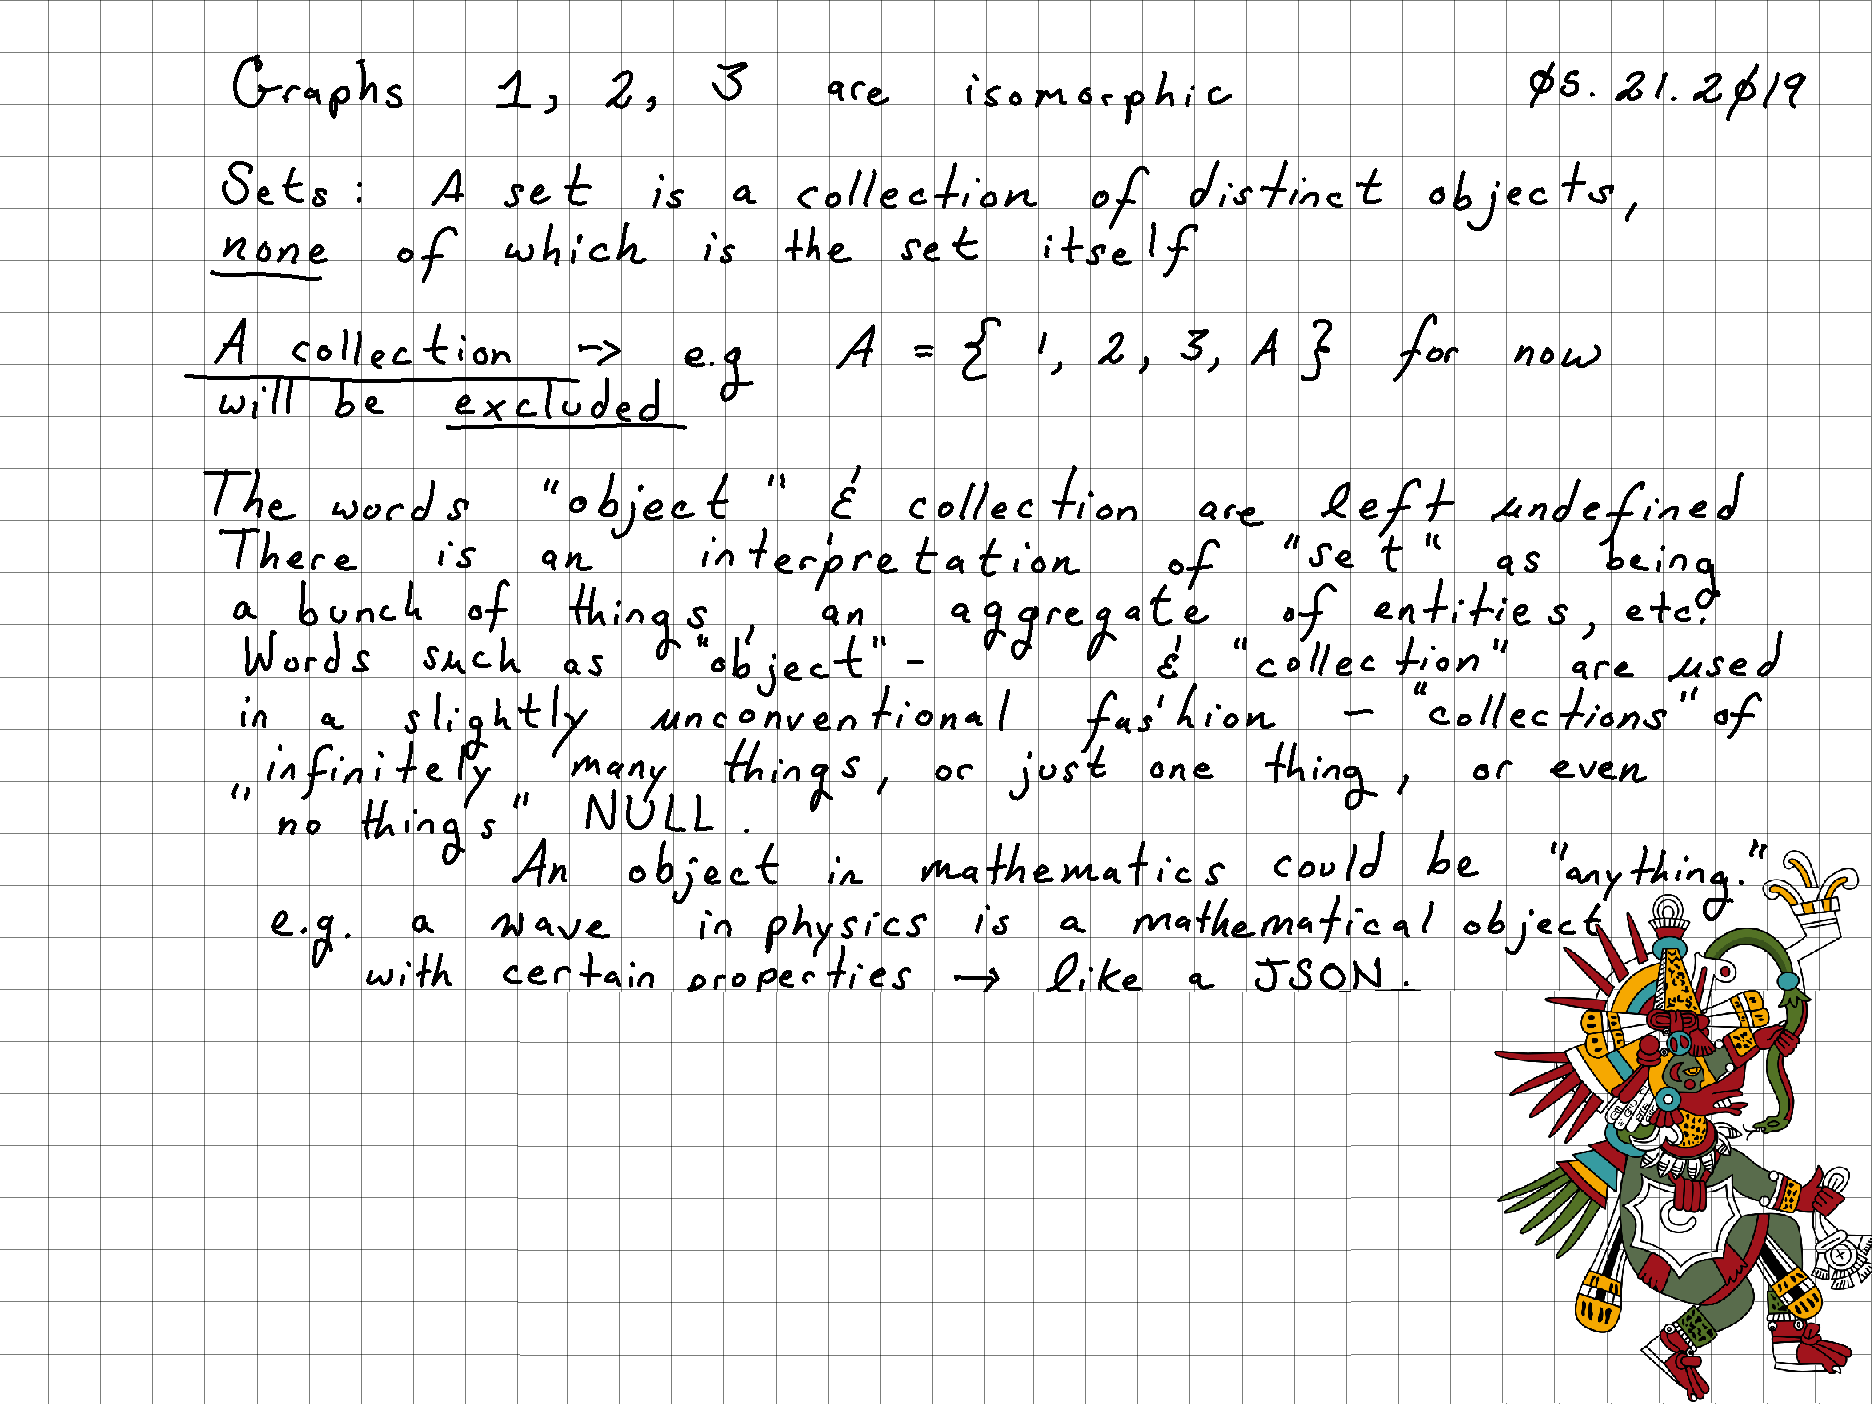 Graphs 1, 2, 3 are isomorphic 05.21.2019
Sets: A set is a collection of distinct objects,
none of which is the set itself
A collection → e.g A = { 1, 2, 3, A } for now
will be excluded
The words "object" & collection are left undefined
There is an interpretation of "set" as being
a bunch of things, an aggregate of entities, etc.
Words such as "object" - & "collection" are used
in a slightly unconventional fashion - "collections" of
infinitely many things, or just one thing, or even
"no things" NULL.
An object in mathematics could be "anything."
e.g. a wave in physics is a mathematical object
with certain properties → like a JSON.